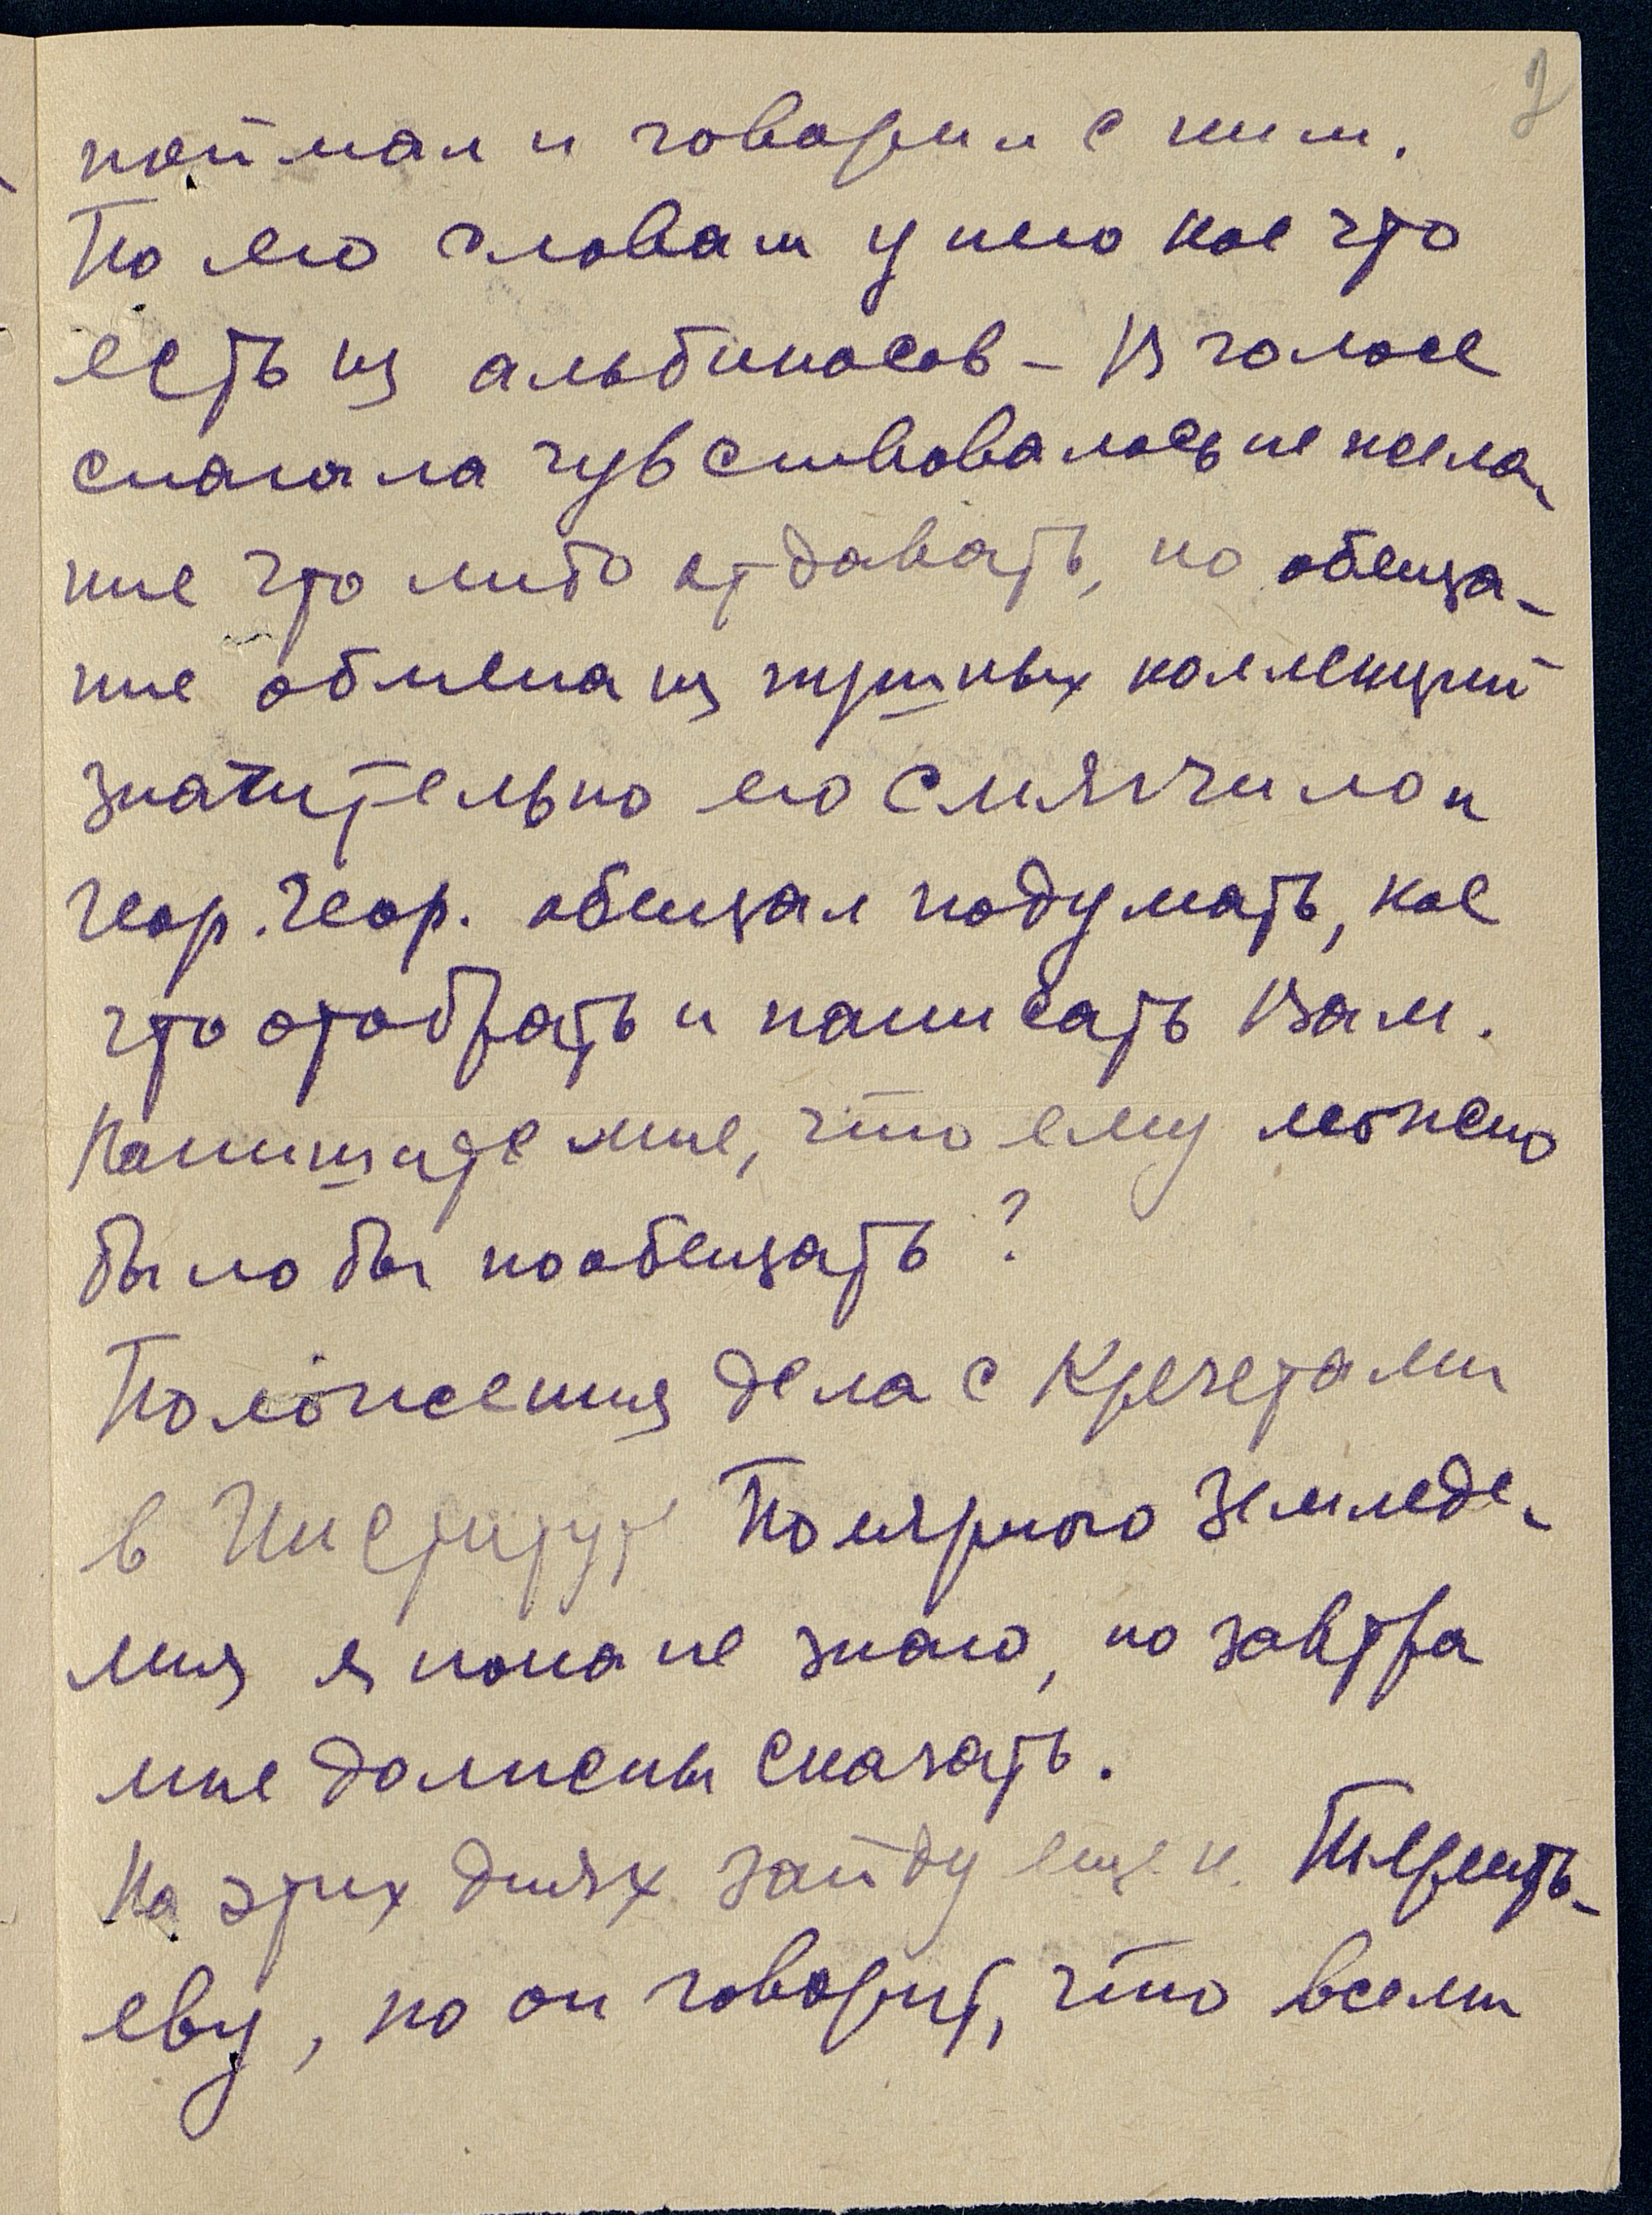 2
поймал и говорил с ним.
По его словам у него кое что
есть из альбиносов – В голосе
сначала чувствовалось не жела-
ние что либо отдавать, но обеща-
ние обмена из пушных коллекций
значительно его смягчило и
Геор. Геор. обещал подумать, кое
что отобрать и написать Вам.
Напишите мне, что ему можно
было бы пообещать?
Положения дела с Кречетами
в Институте Полярного Земледе-
лия я пока не знаю, но завтра
мне должны сказать.
На этих днях зайду еще к Терентьеву-
еву, но он говорит, что всеми